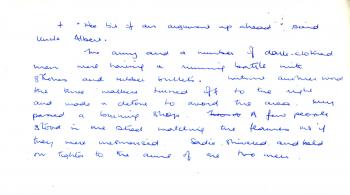 + "The bit of an argument up ahead" said
Uncle Albert.
The army and a number of dark-clothed
men were having a running battle with
stones and rubber bullets. Without another word
the three walkers turned off to the right
and made a detour to avoid the area. They
passed a burning shop. A few people
stood in the street watching the flames as if
they were mesmerised. Sadie shivered and held
on tighter to the arms of the two men.